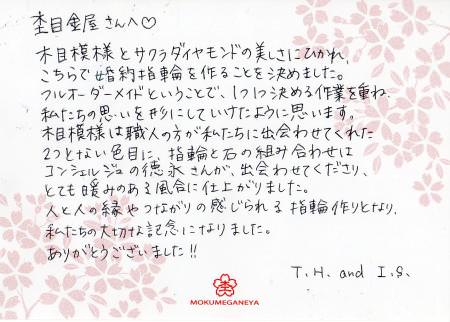 杢目金屋さんへ♡
木目模様とサクラダイヤモンドの美しさにひかれ、
こちらで婚約指輪を作ることを決めました。
フルオーダーメイドということで、1つ1つ決める作業を重ね、
私たちの思いを形にしていけたように思います。
木目模様は職人の方が私たちに出会わせてくれた
2つとない色目に、指輪と石の組み合わせは
コンシェルジュの徳永さんが、出会わせてくださり、
とても暖みのある風合に仕上がりました。
人と人の縁やつながりの感じられる指輪作りとなり、
私たちの大切な記念になりました。
ありがとうございました!!
T.H. and I.S.
MOKUMEGANEYA